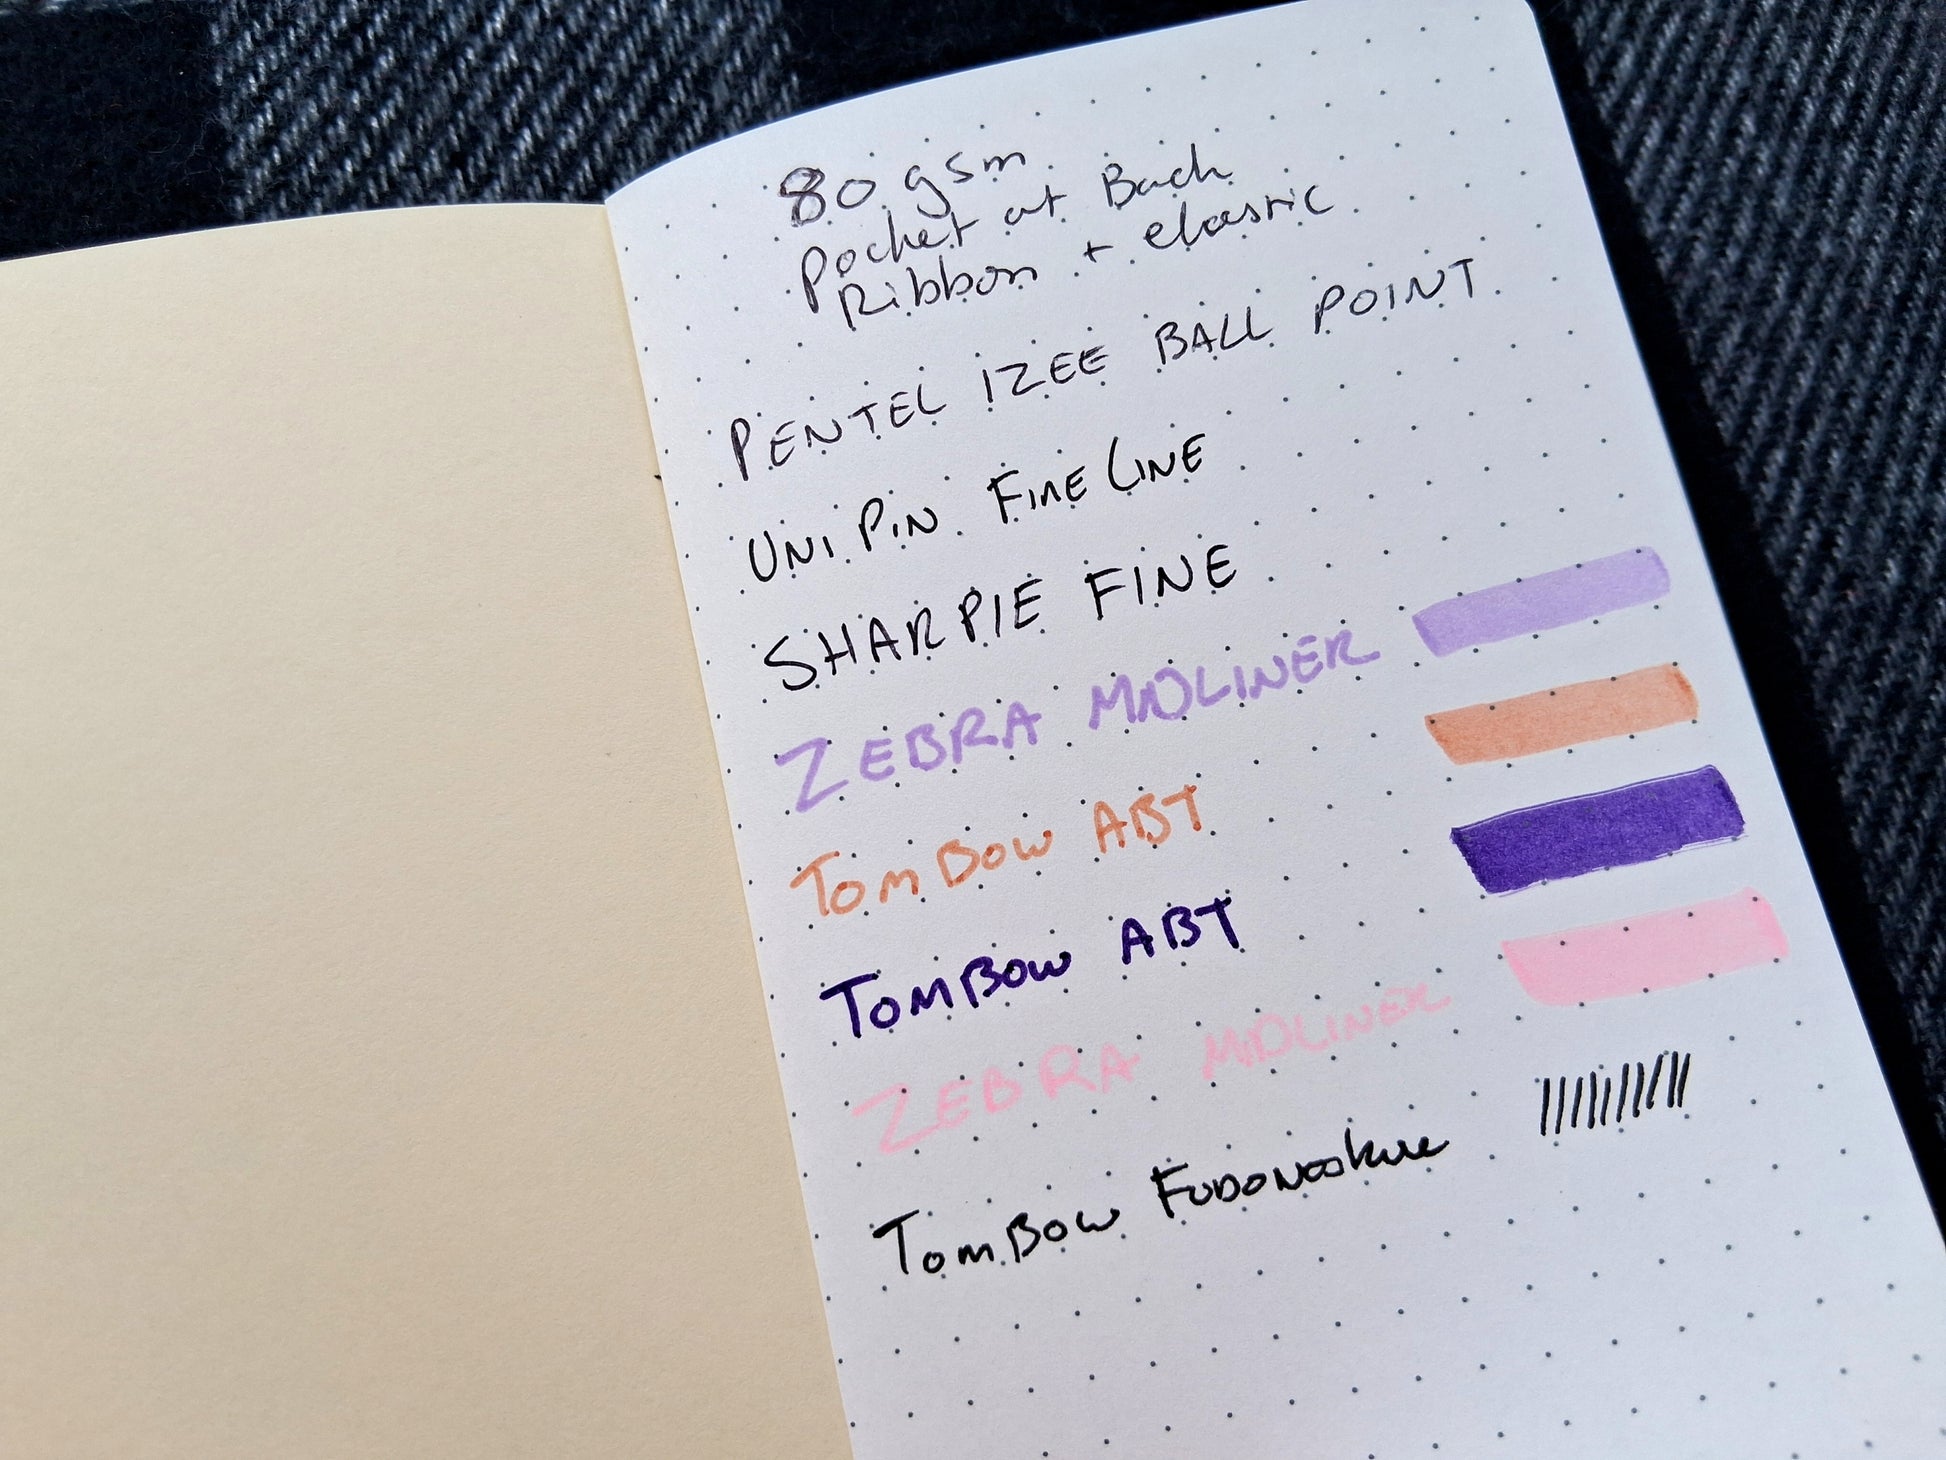 80 gsm
Pocket at Back
Ribbon + elastic
PENTEL IZEE BALL POINT
UNI PIN FINELINE
SHARPIE FINE
ZEBRA MIDLINER
TOMBOW ABT
TOMBOW ABT
ZEBRA MIDLINER
TOMBOW FUDONOSUKE